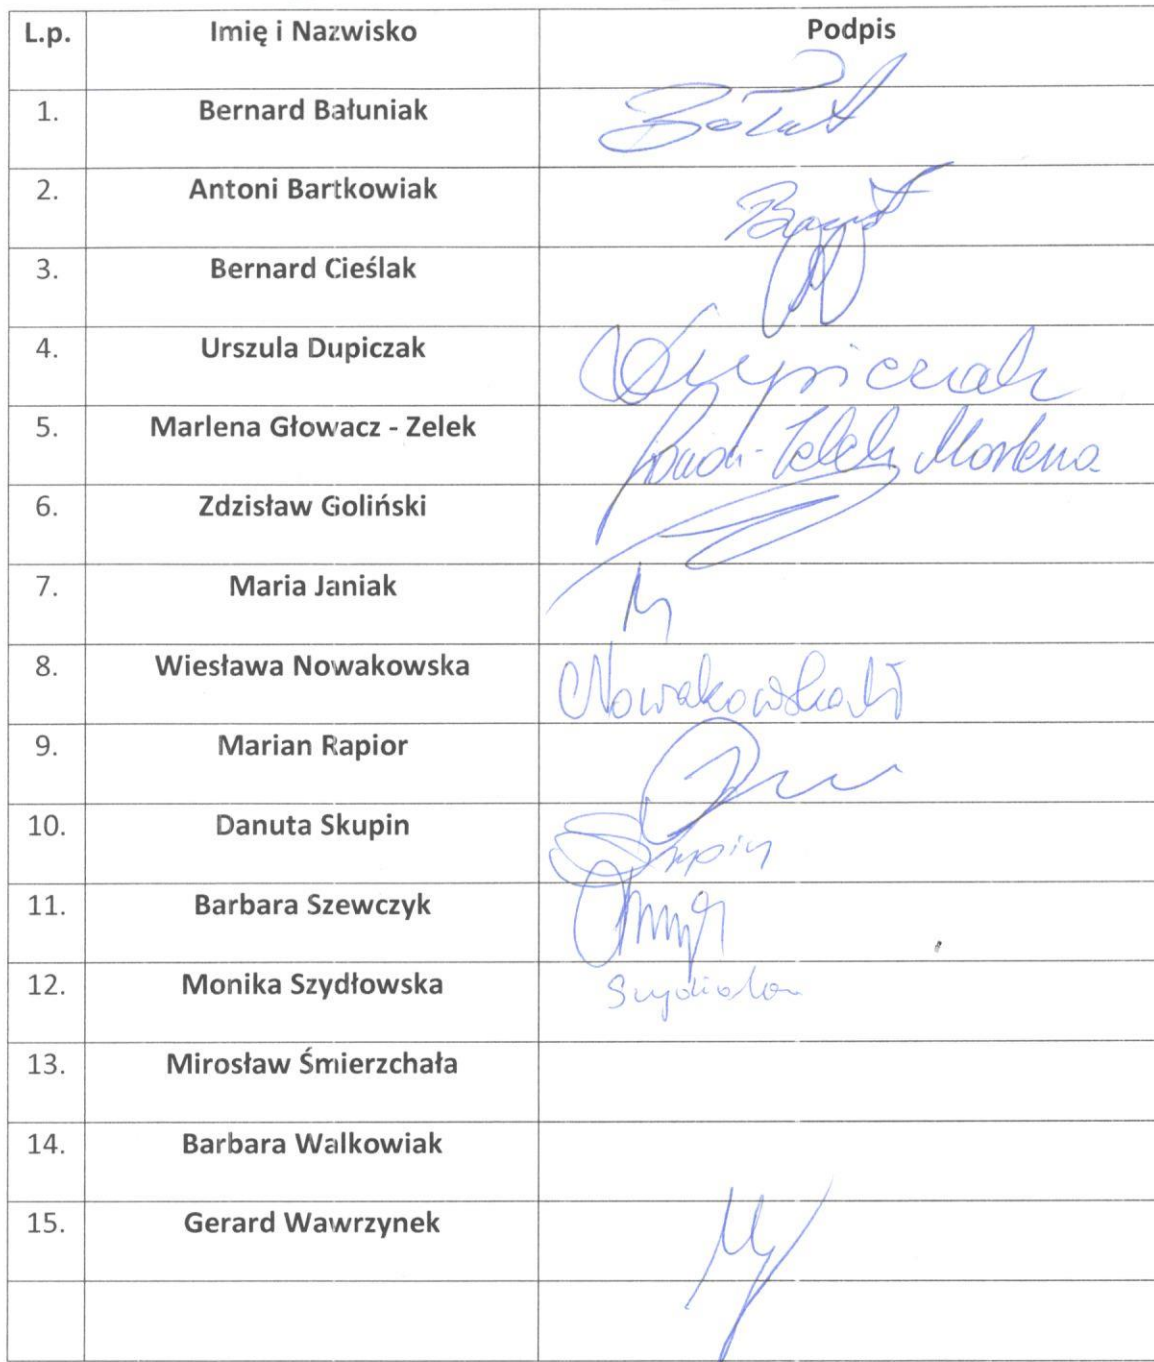 L.p. Imię i Nazwisko Podpis
1. Bernard Bałuniak
2. Antoni Bartkowiak
3. Bernard Cieślak
4. Urszula Dupiczak Dupiczak
5. Marlena Głowacz - Zelek Zelek Marlena
6. Zdzisław Goliński
7. Maria Janiak
8. Wiesława Nowakowska Nowakowska W
9. Marian Rapior
10. Danuta Skupin Skupin
11. Barbara Szewczyk
12. Monika Szydłowska
13. Mirosław Śmierzchała
14. Barbara Walkowiak
15. Gerard Wawrzynek